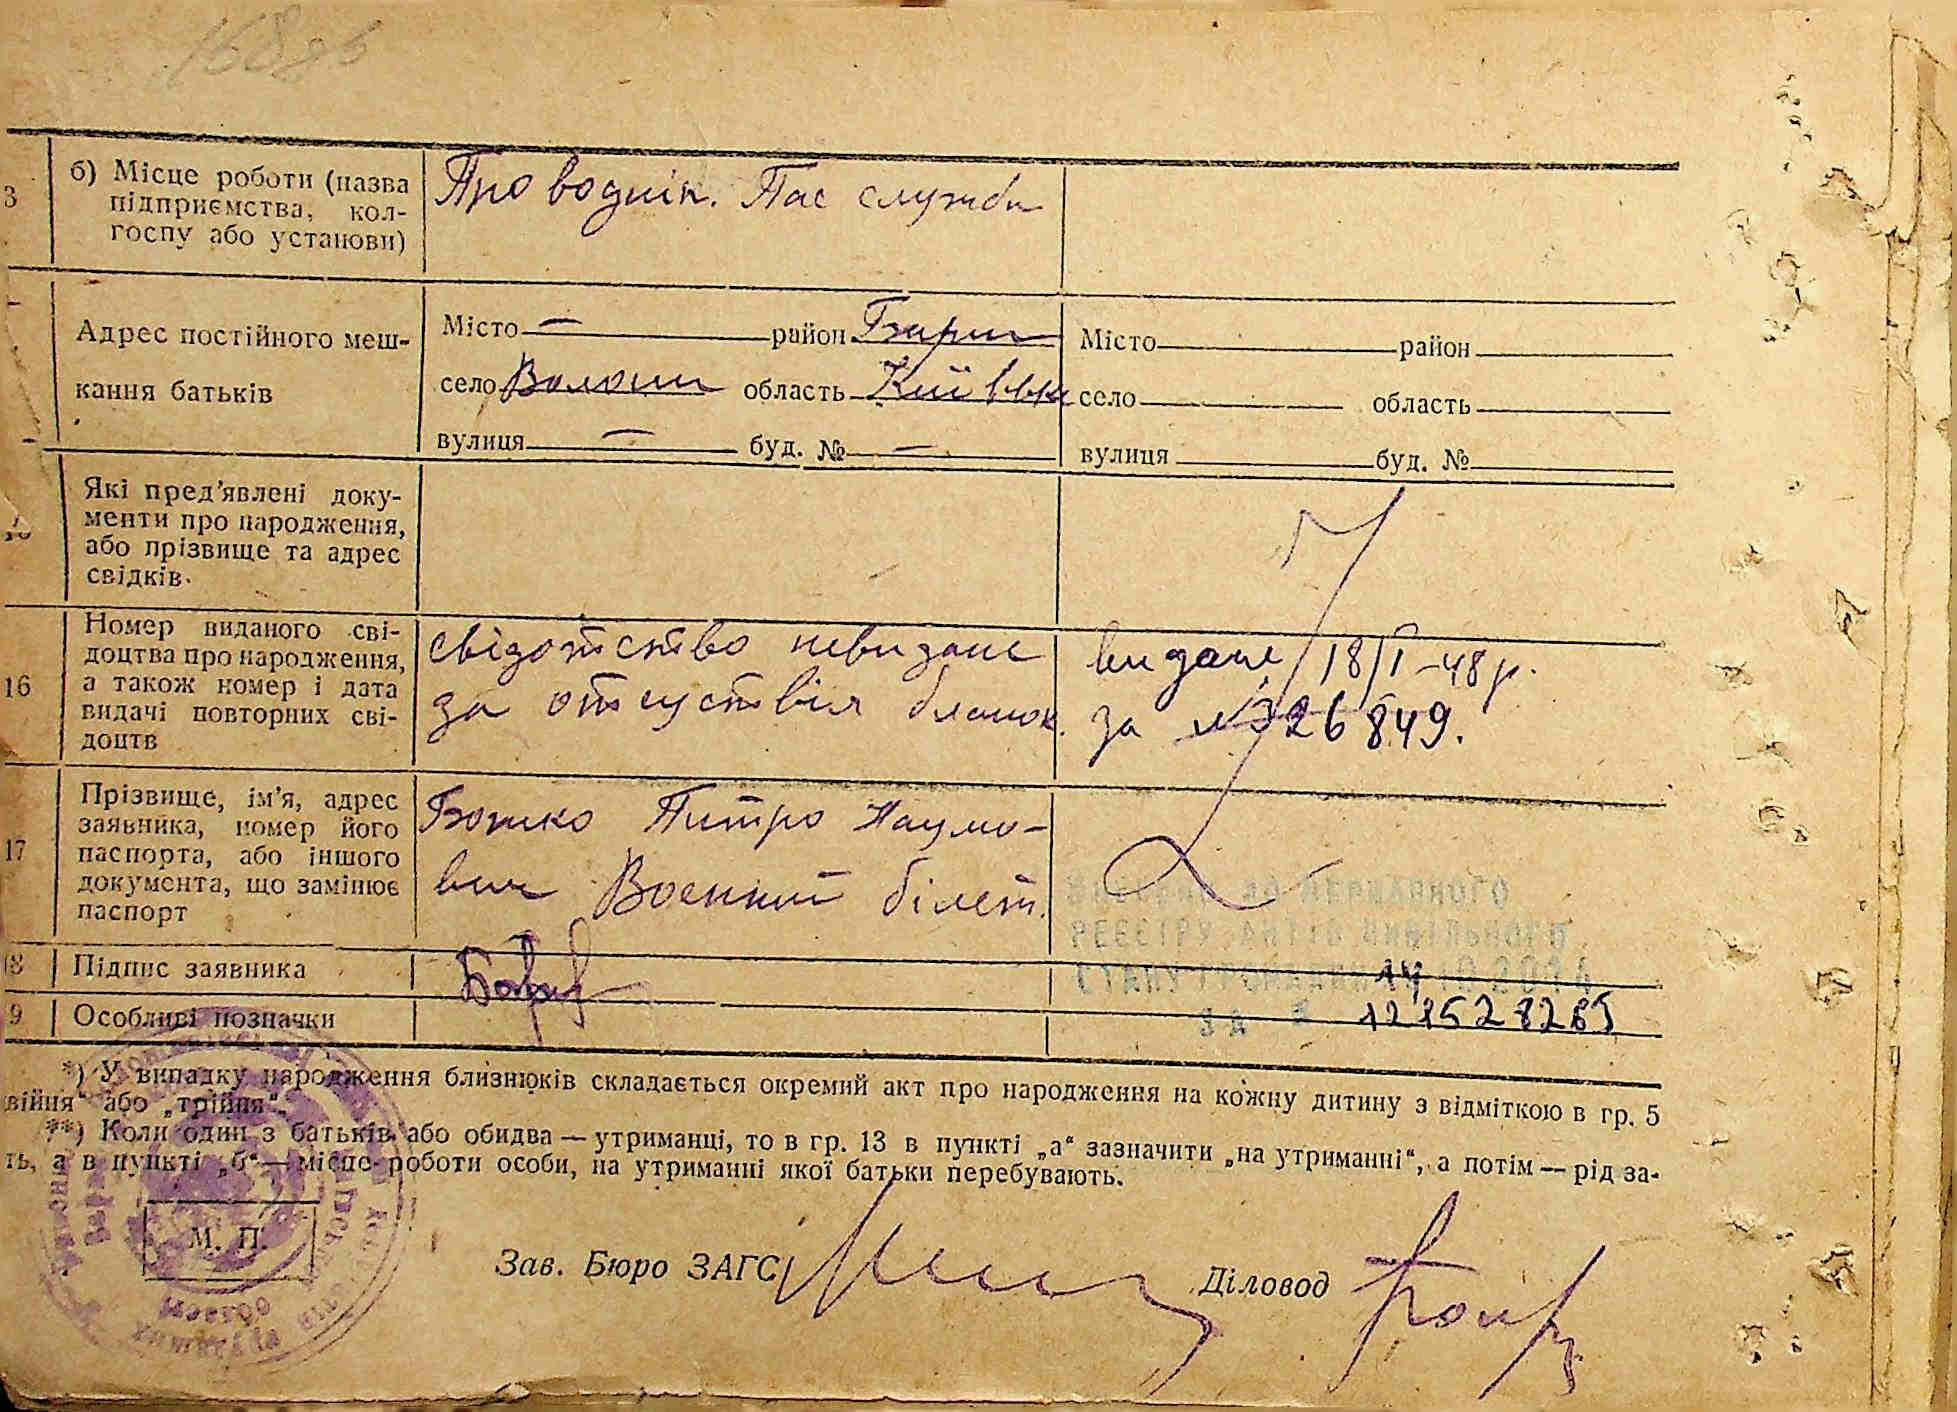 168 зв
3
б) Місце роботи (назва
підприємства, кол-
госпу або установи)
Проводнік. Пас служби
Адрес постійного меш-
кання батьків
Місто — район Бориш
село Волошин область Київська
вулиця — буд. № —
Місто район
село область
вулиця буд. №
Які пред'явлені доку-
менти про народження,
або прізвище та адрес
свідків.
16
Номер виданого сві-
доцтва про народження,
а також номер і дата
видачі повторних сві-
доцтв
свідотство невидане
за отсуствія бланок.
видане 18/І-48р.
за №326849.
17
Прізвище, ім'я, адрес
заявника, номер його
паспорта, або іншого
документа, що замінює
паспорт
Божко Питро Наумо-
вич Военний білет.
ДЕРЖАВНОГО
РЕЄСТРУ АКТІВ ЦИВІЛЬНОГО
СТАНУ ГРОМАДЯН 14 10 2014
ЗА №
18 Підпис заявника
9 Особливі позначки
*) У випадку народження близнюків складається окремий акт про народження на кожну дитину з відміткою в гр. 5
війня" або „трійня".
**) Коли один з батьків або обидва — утриманці, то в гр. 13 в пункті „а" зазначити „на утриманні", а потім — рід за-
ть, а в пункті „б" — місце роботи особи, на утриманні якої батьки перебувають.
М. П.
Зав. Бюро ЗАГС
Діловод